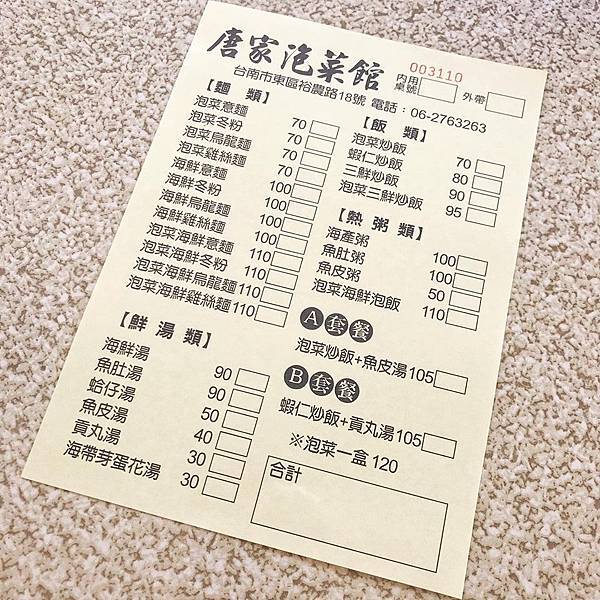 唐家泡菜館
003110
內用
桌號
外帶
台南市東區裕農路18號 電話：06-2763263
【麵 類】
泡菜意麵 70
泡菜冬粉 70
泡菜烏龍麵 70
泡菜雞絲麵 70
海鮮意麵 100
海鮮冬粉 100
海鮮烏龍麵 100
海鮮雞絲麵 100
泡菜海鮮意麵 110
泡菜海鮮冬粉 110
泡菜海鮮烏龍麵 110
泡菜海鮮雞絲麵 110
【鮮 湯 類】
海鮮湯 90
魚肚湯 90
蛤仔湯 50
魚皮湯 40
貢丸湯 30
海帶芽蛋花湯 30
【飯 類】
泡菜炒飯 70
蝦仁炒飯 80
三鮮炒飯 90
泡菜三鮮炒飯 95
【熱 粥 類】
海產粥 100
魚肚粥 100
魚皮粥 50
泡菜海鮮泡飯 110
A套餐
泡菜炒飯+魚皮湯105
B套餐
蝦仁炒飯+貢丸湯105
※泡菜一盒 120
合計